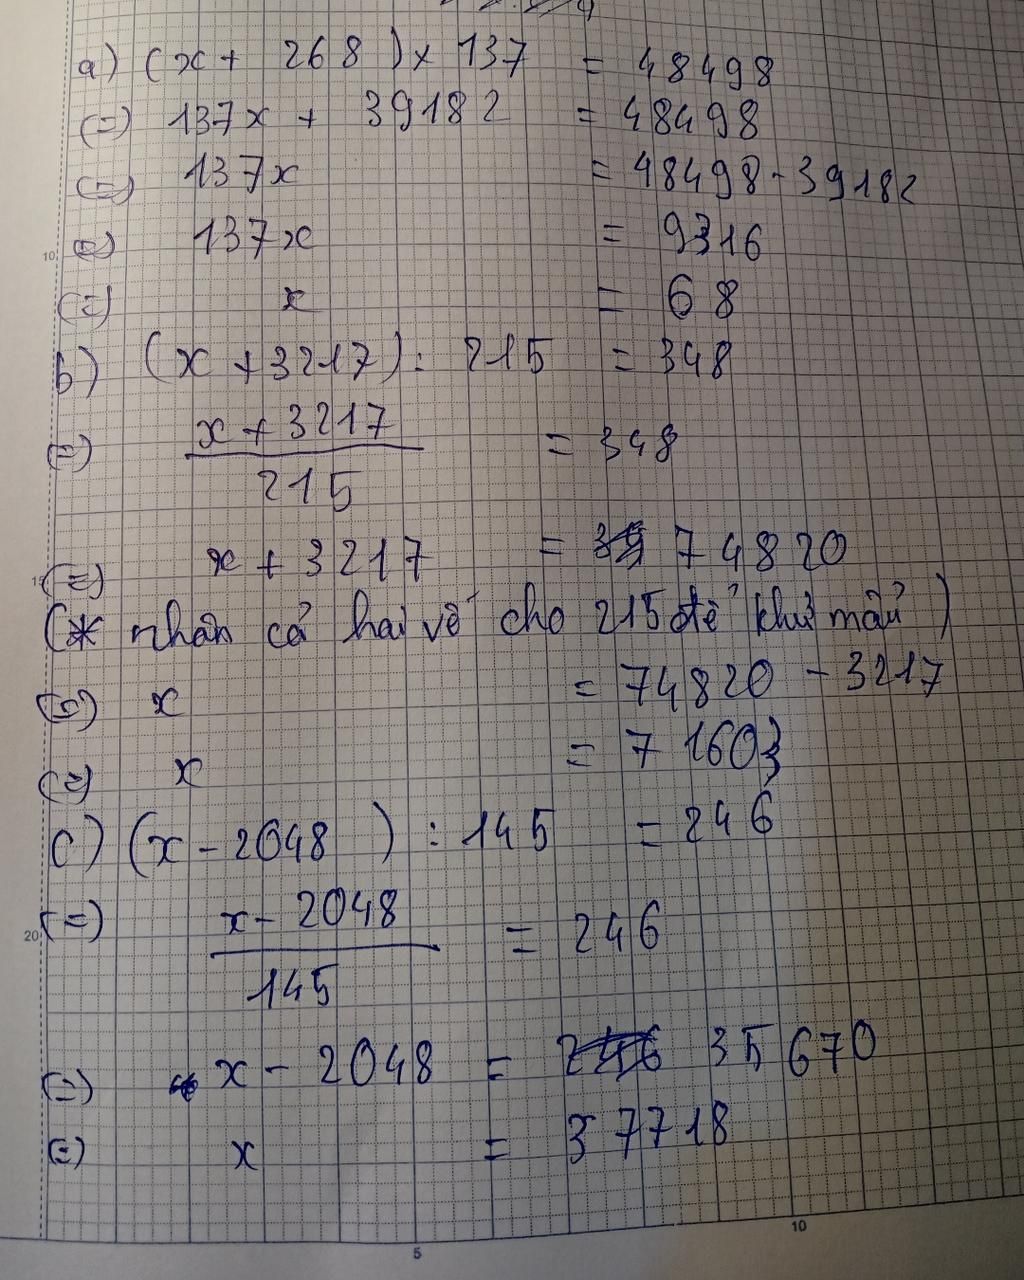 a) (x + 268) x 137 = 48498
(=) 137x + 39182 = 48498
(=) 137x = 48498 - 39182
(=) 137x = 9316
(=) x = 68
b) (x + 3217) : 215 = 348
(=) x + 3217 / 215 = 348
(=) x + 3217 = 74820
(* nhân cả hai vế cho 215 để khử mẫu)
(=) x = 74820 - 3217
(=) x = 71603
c) (x - 2048) : 145 = 246
(=) x - 2048 / 145 = 246
(=) x - 2048 = 35670
(=) x = 37718
10
15
20
5
10